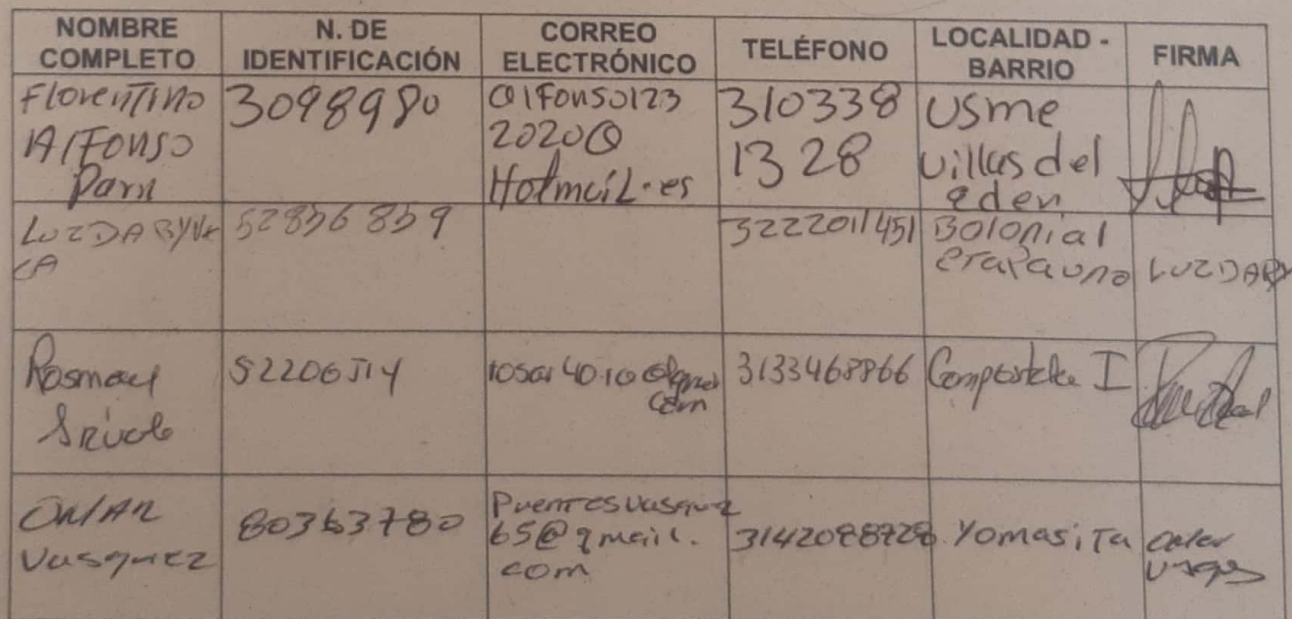 NOMBRE COMPLETO N. DE IDENTIFICACIÓN CORREO ELECTRÓNICO TELÉFONO LOCALIDAD - BARRIO FIRMA
Florentino
Alfonso
3098980
alfonso123
2020@
Hotmail.es
310338
1328
Usme
villas del
eden
LUZ DARY
52836859
3222011451
Bolonial
etapa uno
LUZ DARY
Rosmary
3133468866
Compostela I
OMAR
Vasquez
80363780
Puentesvasquez
65@gmail.
com
3142088728
Yomasita